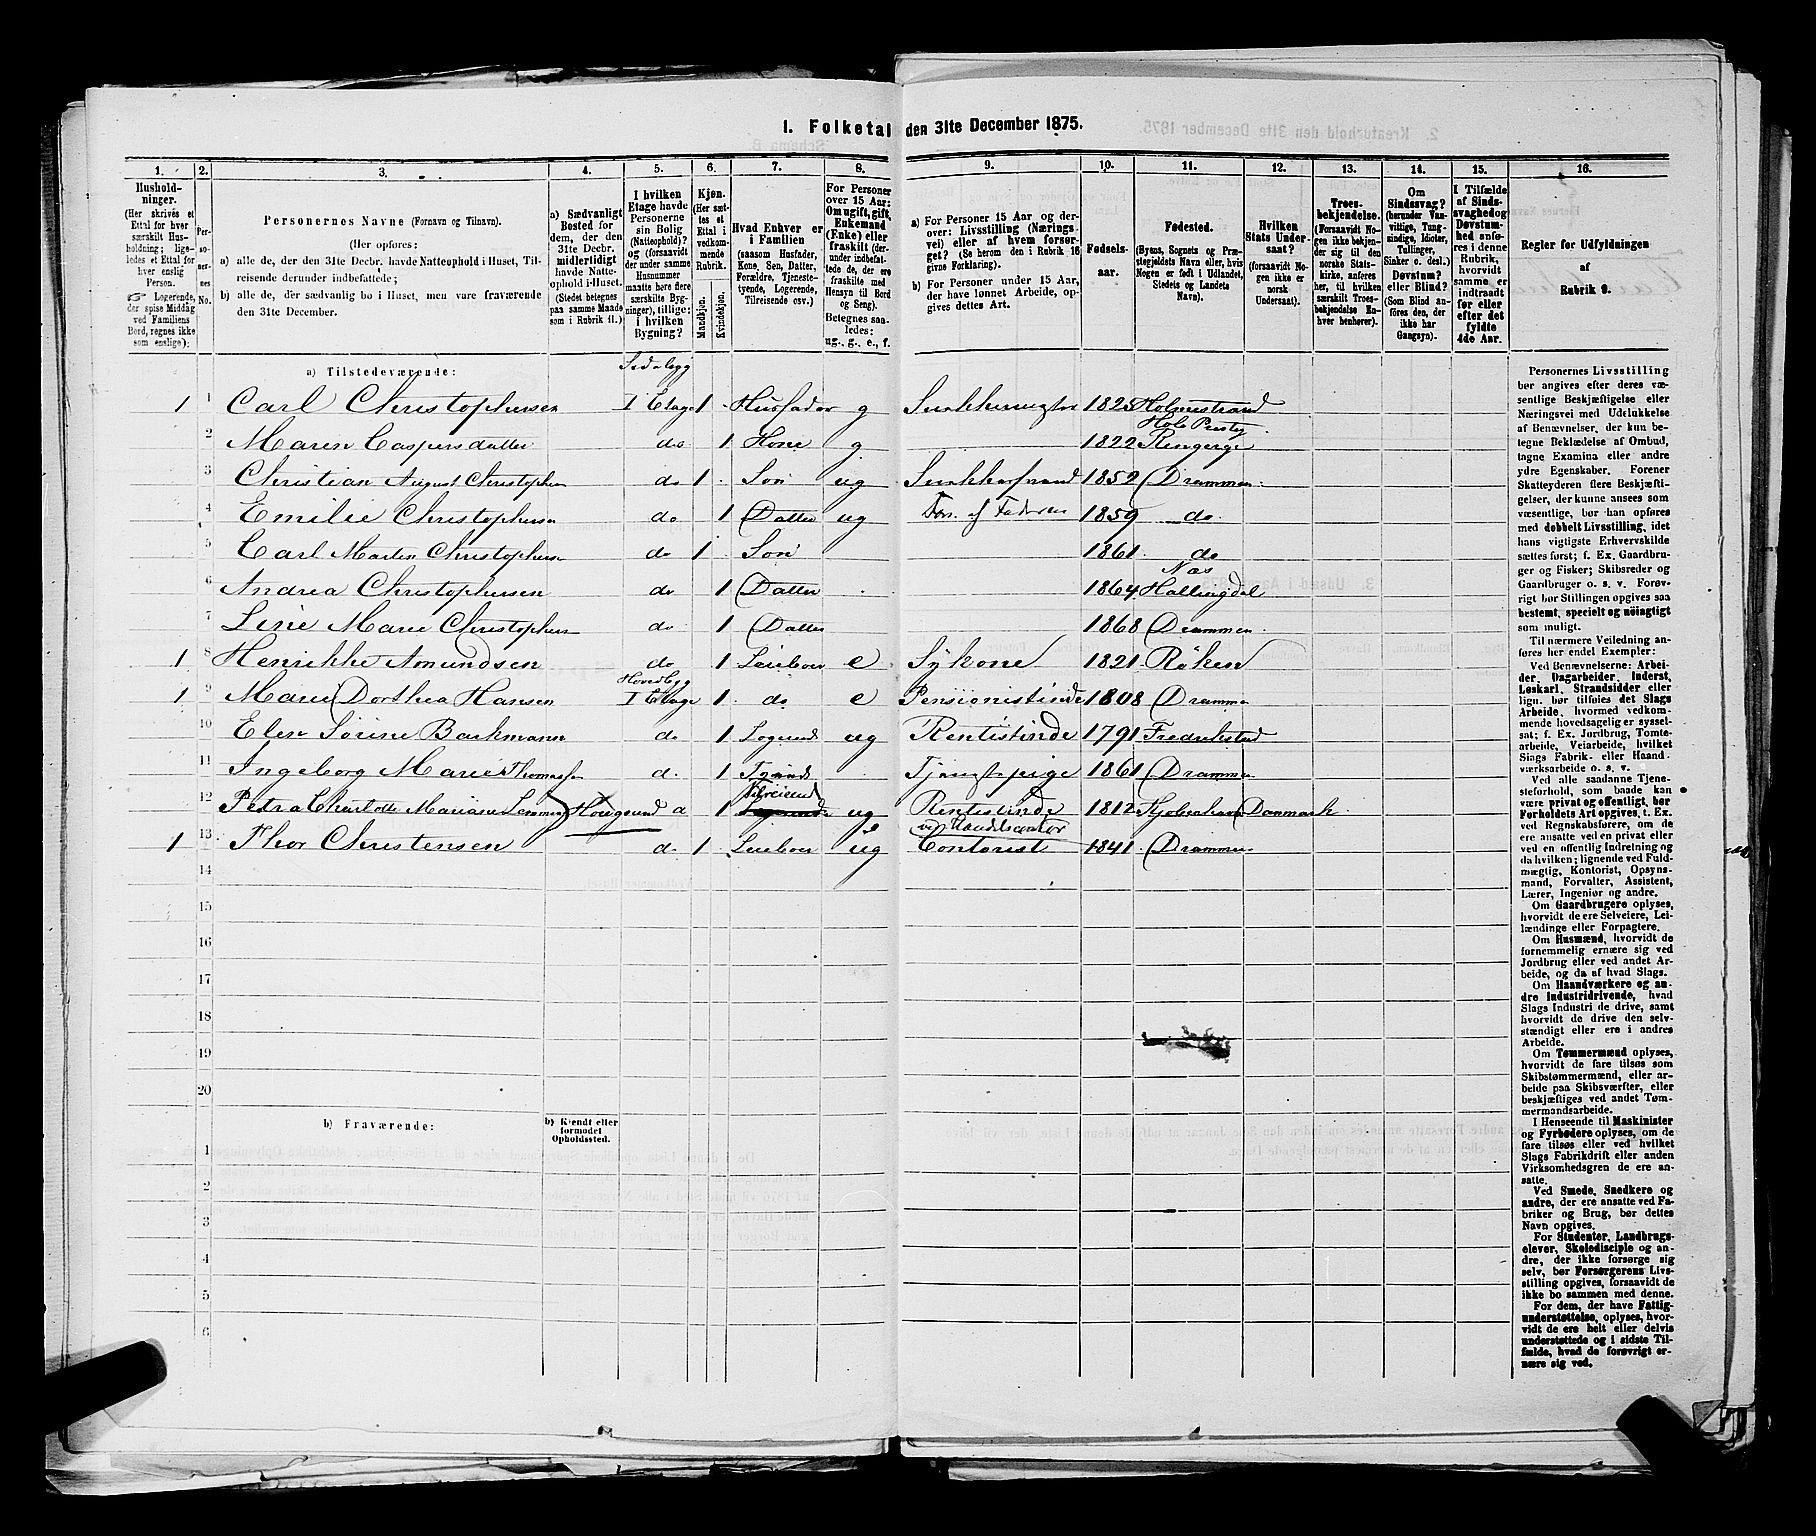 1. Folketal den 31te December 1875.
1. 2. 3. 4. 5. 6. 7. 8. 9. 10. 11. 12. 13. 14. 15. 16.
Hushold-
ninger.
(Her skrivés et
Ettal for hver
særskilt Hus-
holdning; lige-
ledes et Ettal for
hver enslig
Person.
☞ Logerende,
der spise Middag
ved Familiens
Bord, regnes ikke
som enslige).
Per-
so-
ner-
nes
No.
Personernes Navne (Fornavn og Tilnavn).
(Her opføres:
a) alle de, der den 31te Decbr. havde Natteophold i Huset, Til-
reisende derunder indbefattede;
b) alle de, der sædvanlig bo i Huset, men vare fraværende
den 31te December.
a) Sædvanligt
Bosted for
dem, der den
31te Decbr.
midlertidigt
havde Natte-
ophold i Huset.
(Stedet betegnes
paa samme Maade
som i Rubrik 11.)
I hvilken
Etage havde
Personerne
sin Bolig
(Natteophold)?
og (forsaavidt
der under samme
Husnummer
maatte høre flere
særskilte Byg-
ninger), tillige:
i hvilken
Bygning?
Kjøn.
(Her sæt-
tes et
Ettal i
vedkom-
mende
Rubrik.
Mandkjøn.
Kvindekjøn.
Hvad Enhver er
i Familien
(saasom Husfader,
Kone, Søn, Datter,
Forældre, Tjeneste-
tyende, Logerende,
Tilreisende osv.)
For Personer
over 15 Aar:
Om ugift, gift,
Enkemand
(Enke) eller
fraskilt (der-
under indbefat-
tede de, der ere
fraskilte med
Hensyn til Bord
og Seng).
Betegnes saa-
ledes:
ug., g., e., f.
a) For Personer 15 Aar og der-
over: Livsstilling (Nærings-
vei) eller af hvem forsør-
get? (Se herom den i Rubrik 16
givne Forklaring).
b) For Personer under 15 Aar,
der have lønnet Arbeide, op-
gives dettes Art.
Fødsels-
aar.
Fødested.
(Byens, Sognets og Præ-
stegjeldets Navn eller, hvis
Nogen er født i Udlandet,
Stedets og Landets
Navn).
Hvilken
Stats Under-
saat?
(forsaavidt No-
gen ikke er
norsk
Undersaat).
Troes-
bekjendelse.
(Forsaavidt No-
gen ikke bekjen-
der sig til den
norske Stats-
kirke, anføres
her, til hvilken
særskilt Troes-
bekjendelse En-
hver henhører).
Om
Sindssvag?
(herunder Van-
vittige, Tung-
sindige, Idioter,
Tullinger,
Sinker o. desl.)
Døvstum?
eller Blind?
(Som Blind an-
føres den, der
ikke har
Gangsyn).
I Tilfælde
af Sinds-
svaghed og
Døvstum-
hed anfø-
res i denne
Rubrik,
hvorvidt
samme er
indtraadt
før eller
efter det
fyldte
4de Aar.
Regler for Udfyldningen
af
Rubrik 9.
a) Tilstedeværende:
Sidebygg
1 1 Carl Christophersen I Etage 1 Husfader g 1825 Holmestrand
Hole Præstg.
2 Maren Caspersdatter do 1 Kone g 1822 Ringerige
3 Christian August Christophersen do 1 Søn ug 1852 Drammen
4 Emilie Christophersen do 1 Datter ug Fors. af Faderen 1859 do
5 Carl Martin Christophersen do 1 Søn 1861 do
Næs
6 Andrea Christophersen do 1 Datter 1864 Hallingdal
7 Line Marie Christophersen do 1 Datter 1868 Drammen
1 8 Henrikke Amundsen do 1 Leieboer e Sykone 1821 Røken
Hovedbyg
1 9 Marie Dorthea Hansen I Etage 1 do e Pensionistinde 1808 Drammen
10 Elen Sørine Backmann do 1 Logerende ug Rentistinde 1791 Fredrikstad
11 Ingeborg Marie Thomassen do 1 Tjenende Tjenestepige 1861 Drammen
Tilreisende
12 Petra Charlotte Mariane Lemmen Hougsund do 1 ug Rentistinde 1812 Kjøbenhavn Danmark
ved Handelscontor
1 13 Thor Christensen do 1 Leieboer ug Contorist 1841 Drammen
14
15
16
17
18
19
20
b) Fraværende:
b) Kjendt eller
formodet
Opholdssted.
1
2
3
4
5
6
Personernes Livsstilling
bør angives efter deres væ-
sentlige Beskjæftigelse eller
Næringsvei med Udelukkelse
af Benævnelser, der kun be-
tegne Beklædelse af Ombud,
tagne Examina eller andre
ydre Egenskaber. Forener
Skatteyderen flere Beskjæfti-
gelser, der kunne ansees som
væsentlige, bør han opføres
med dobbelt Livsstilling, idet
hans vigtigste Erhvervskilde
sættes først; f. Ex. Gaardbru-
ger og Fisker; Skibsreder og
Gaardbruger o. s. v. Forøv-
rigt bør Stillingen opgives saa
bestemt, specielt og nöiagtigt
som muligt.
Til nærmere Veiledning an-
føres her endel Exempler:
Ved Benævnelserne: Arbei-
der, Dagarbeider, Inderst,
Løskarl, Strandsidder eller
lign. bør tilføies det Slags
Arbeide, hvormed vedkom-
mende hovedsagelig er syssel-
sat; f. Ex. Jordbrug, Tomte-
arbeide, Veiarbeide, hvilket
Slags Fabrik- eller Haand-
værksarbeide o. s. v.
Ved alle saadanne Tjene-
steforhold, som baade kan
være privat og offentligt, bør
Forholdets Art opgives, t. Ex.
ved Regnskabsførere, om de
ere ansatte ved en privat eller
ved en offentlig Indretning og
da hvilken; lignende ved Fuld-
mægtig, Kontorist, Opsyns-
mand, Forvalter, Assistent,
Lærer, Ingeniør og andre.
Om Gaardbrugere oplyses,
hvorvidt de ere Selveiere, Lei-
lændinge eller Forpagtere.
Om Husmænd, hvorvidt de
fornemmelig ernære sig ved
Jordbrug eller ved andet Ar-
beide, og da af hvad Slags.
Om Haandværkere og an-
dre industridrivende, hvad
Slags Industri de drive, samt
hvorvidt de drive den selv-
stændigt eller ere i andres
Arbeide.
Om Tømmermænd oplyses,
hvorvidt de fare tilsøs som
Skibstømmermænd, eller ar-
beide paa Skibsværfter, eller
beskjæftiges ved andet Tøm-
mermandsarbeide.
I Henseende til Maskinister
og Fyrbødere oplyses, om de
fare tilsøs eller ved hvilket
Slags Fabrikdrift eller anden
Virksomhedsgren de ere an-
satte.
Ved Smede, Snedkere og
andre, der ere ansatte ved Fa-
briker og Brug, bør dettes
Navn opgives.
For Studenter, Landbrugs-
elever, Skoledisciple og an-
dre, der ikke forsørge sig
selv, bør Forsørgerens Livs-
stilling opgives, forsaavidt de
ikke bo sammen med denne.
For dem, der have Fattig-
understøttelse, oplyses, hvor-
vidt de ere helt eller delvis
understøttede og i sidste Til-
fælde, hvad de forøvrigt er-
nære sig ved.